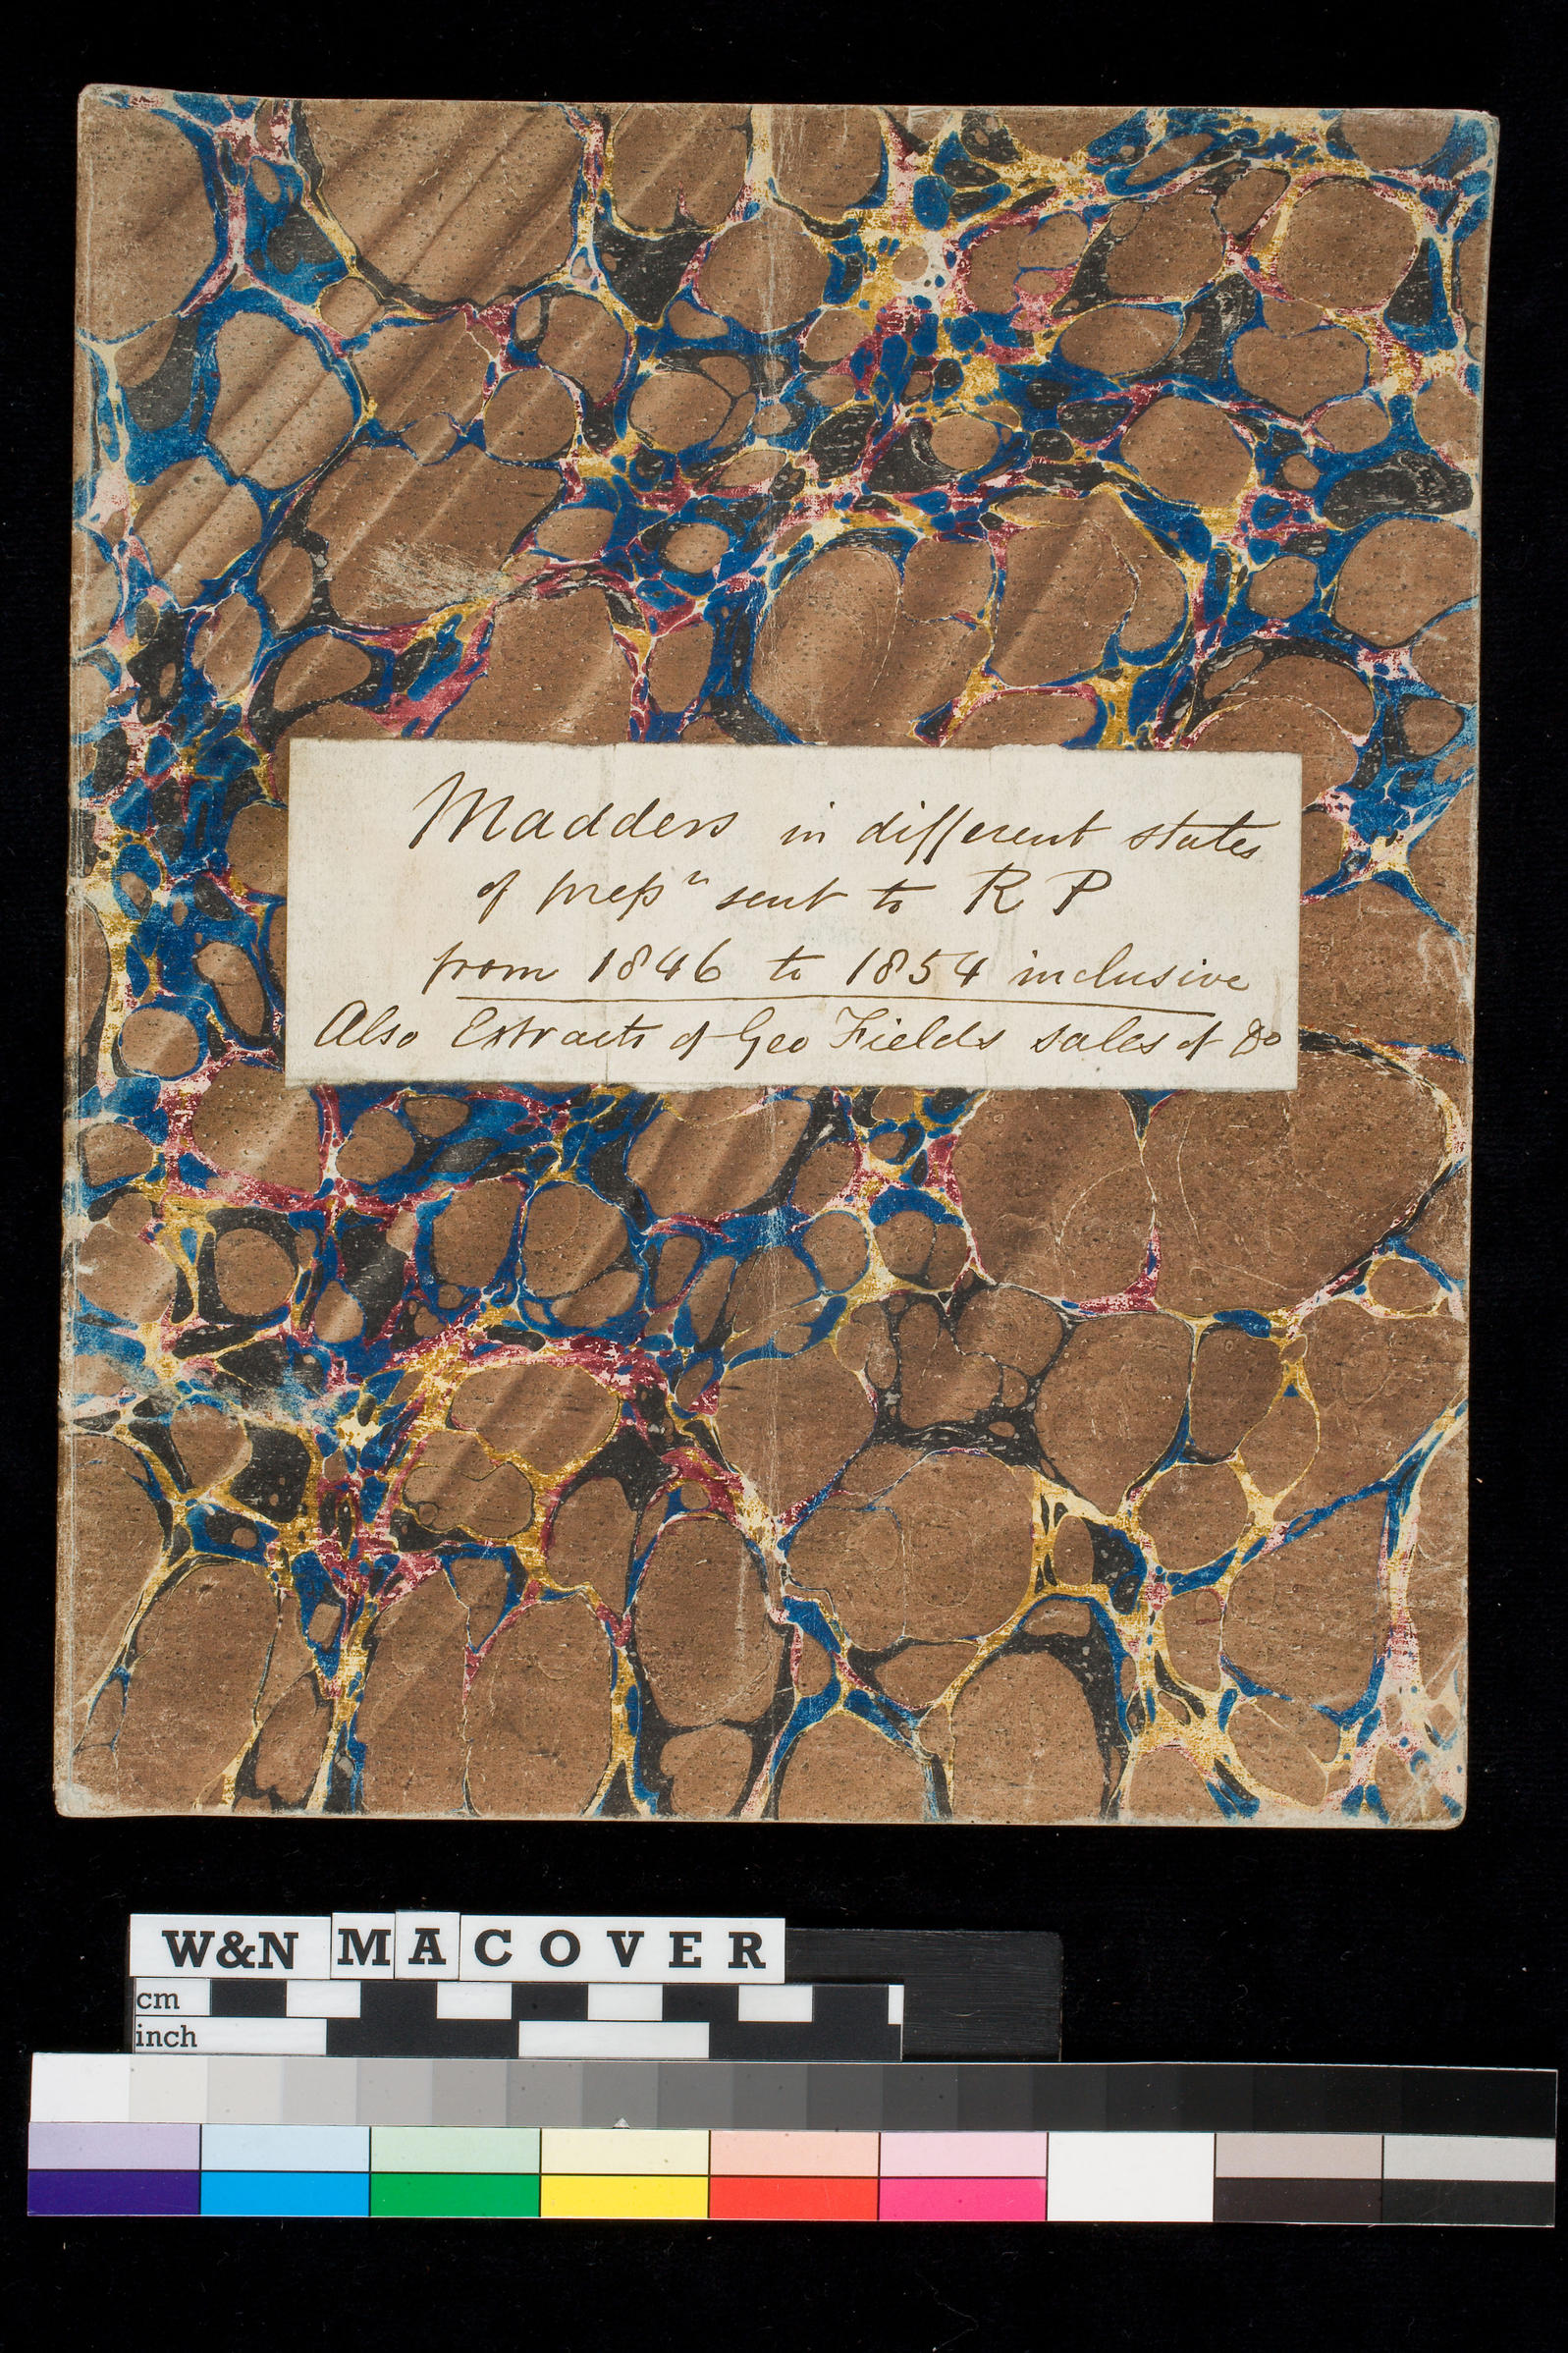 Madders in different states
of prepn sent to R P
from 1846 to 1854 inclusive
Also Extracts of Geo Fields sales of Do
W&N MACOVER
cm
inch